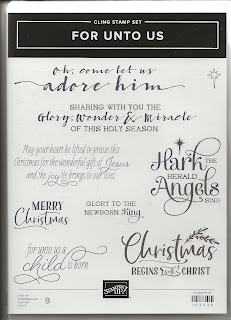 CLING STAMP SET
FOR UNTO US
oh, come let us
adore him
SHARING WITH YOU THE
Glory, Wonder & Miracle
OF THIS HOLY SEASON
May your heart be lifted in praise this
Christmas for the wonderful gift of Jesus
and the joy He brings to our lives.
Hark
THE
HERALD
Angels
SING
MERRY
Christmas
GLORY TO THE
NEWBORN King
for unto us a
child is born
Christmas
BEGINS with CHRIST
STAMPIN' UP!
9